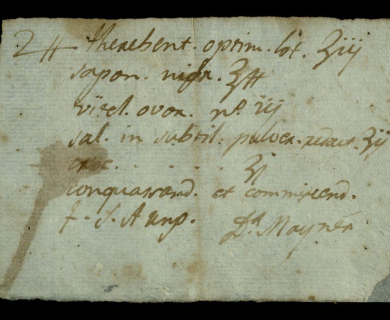 ℞ therebent. optim. lot. ℥iij
sapon. nigr. ℥ß
vitel. ovor. nº iij
sal. in subtil. pulver. redact. ʒij
croc. . . . . . ʒj
conquassand. et commiscend.
f. S. A unp.
Dr Mayner